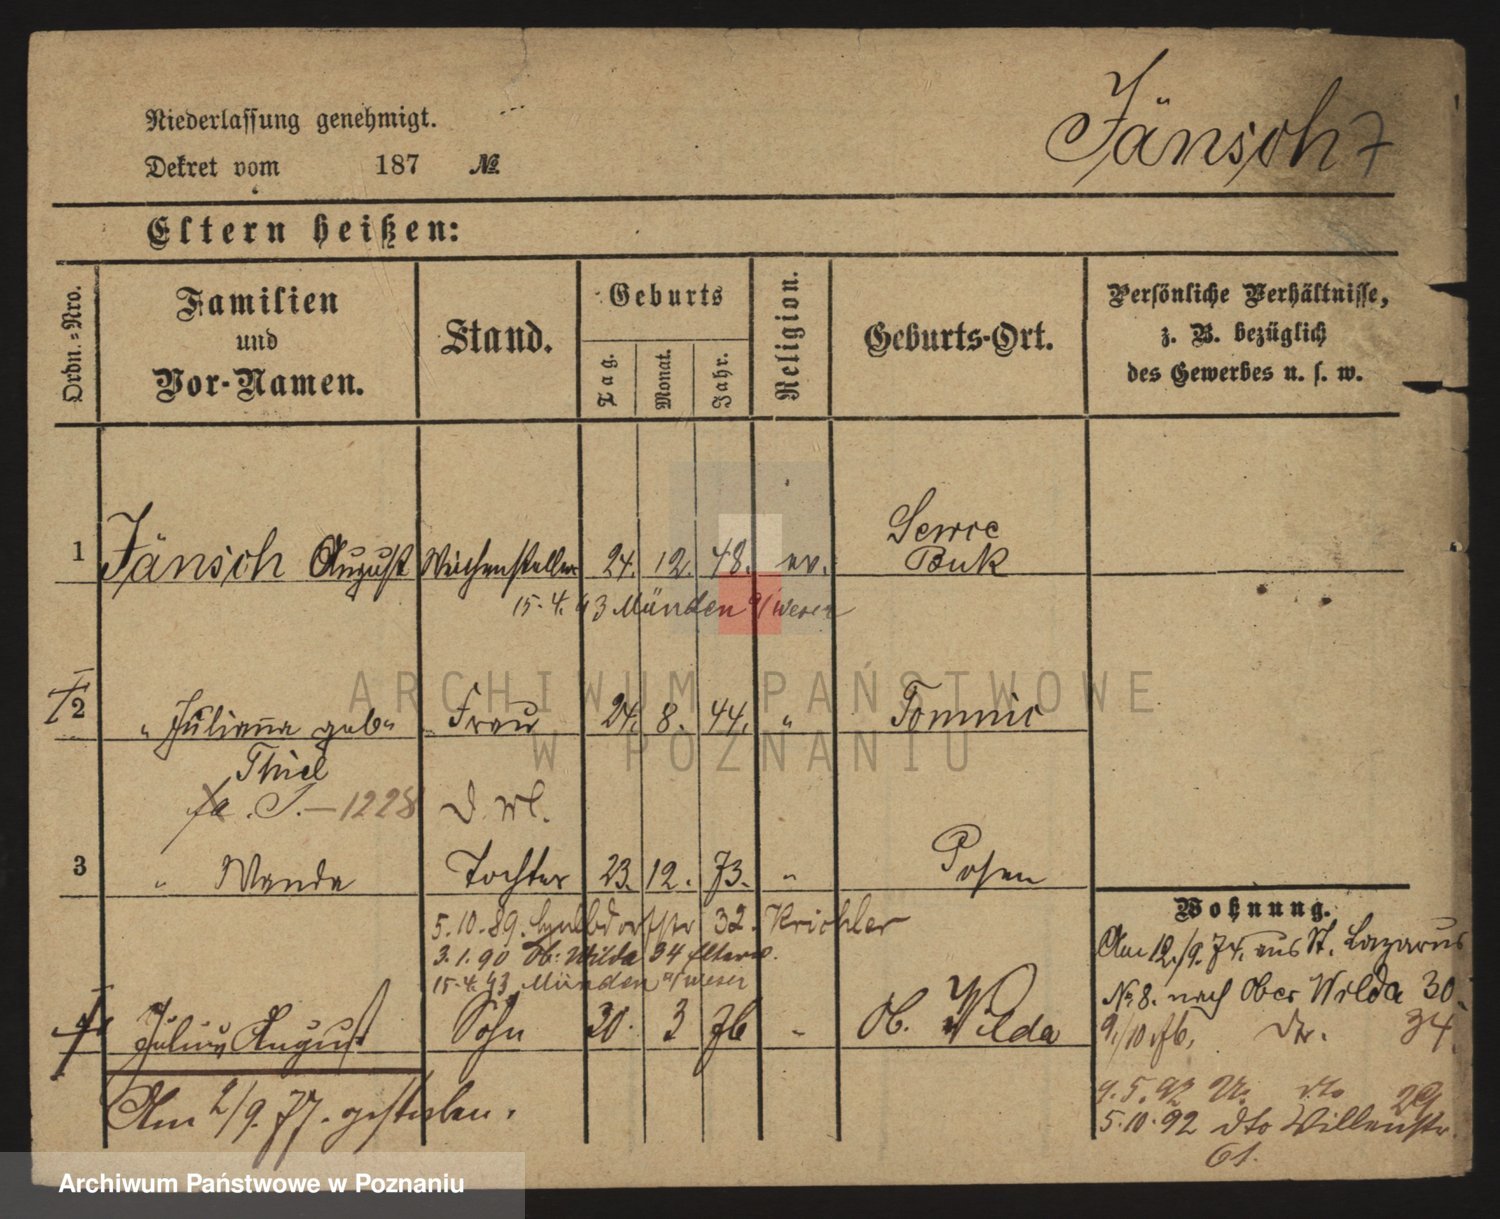 Niederlassung genehmigt.
Dekret vom 187 №
Jänsch 7
Eltern heißen:
Ordn.-Nro.
Familien
und
Vor-Namen.
Stand.
Geburts
Tag.
Monat.
Jahr.
Religion.
Geburts-Ort.
Persönliche Verhältnisse,
z. B. bezüglich
des Gewerbes u. s. w.
1 Jänsch August Weichensteller 24. 12. 48. ev. Serrce
Buk
15.4.93 Münden a/weser
2 " Juliana geb. Frau 24. 8. 44. " Tomnic
Thiel
1228
3 " Wanda Tochter 23. 12. 73. " Posen
5.10.89. 32. Krichler
3.1.90 Ob. Wilda 34
15.4.93 Münden a/weser
Julius August Sohn 30. 3 76 " Ob. Wilda
Am 2/9. 77. gestorben.
Wohnung.
Am 12/9. 74. aus St. Lazarus
No 8. nach Ober Wilda 30.
9/10 76. 34
9.5.92 dto 29
5.10.92 dto
61.
ARCHIWUM PAŃSTWOWE
W POZNANIU
Archiwum Państwowe w Poznaniu